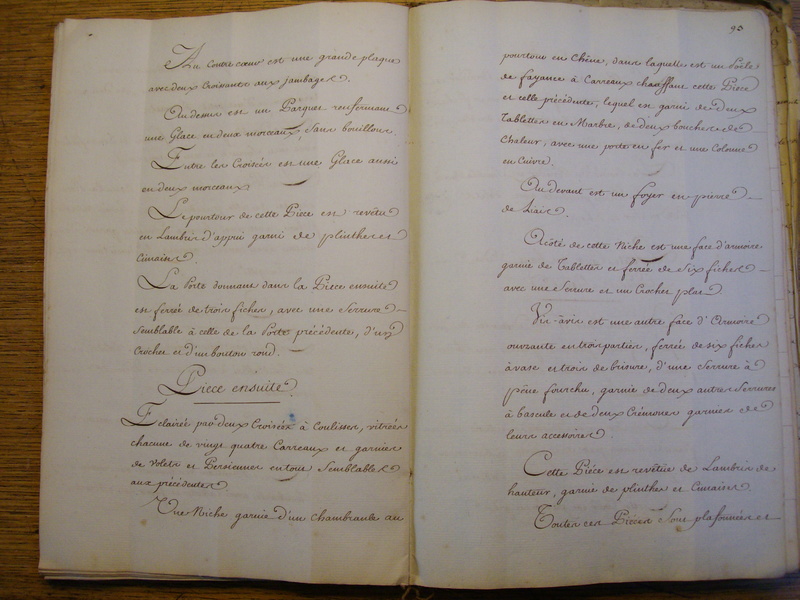 Au Contre cœur est une grande plaque
avec deux Croissants aux jambages.
Au dessus est un Parquet renfermant
une Glace en deux morceaux, sans bouillons.
Entre les Croisées est une Glace aussi
en deux morceaux
Le pourtour de cette Pièce est revêtu
en Lambris d'appui garni de plinthes et
Cimaises.
La Porte donnant dans la Piece ensuite
est ferrée de trois fiches, avec une Serrure
Semblable à celle de la Porte précédente, d'un
Crochet et d'un bouton rond.
Piece ensuite.
Eclairée par deux Croisées à Coulisses, vitrées
chacune de vingt quatre Carreaux et garnies
de Volets et Persiennes en tout Semblables
aux précédentes
Une Niche garnie d'un chambranle au
95
pourtour en Chêne, dans laquelle est un Poële
de fayance à Carreaux chauffant cette Pièce
et celle précédente, lequel est garni de deux
Tablettes en Marbre, de deux bouches de
Chaleur, avec une porte en fer et une Colonne
en Cuivre.
Au devant est un foyer en pierre
de Liais.
A côté de cette Niche est une face d'armoire
garnie de Tablettes et ferrée de Six fiches
avec une Serrure et un Crochet plat
Vis-à-vis est une autre face d'Armoire
ouvrante en trois parties, ferrée de six fiches
à vase et trois de brisure, d'une Serrure à
pêne fourchu, garnie de deux autres Serrures
à bascule et de deux Crémones garnies de
leurs accessoires.
Cette Pièce est revêtue de Lambris de
hauteur, garnie de plinthe et Cimaises.
Toutes ces Pièces Sont plafonnées et